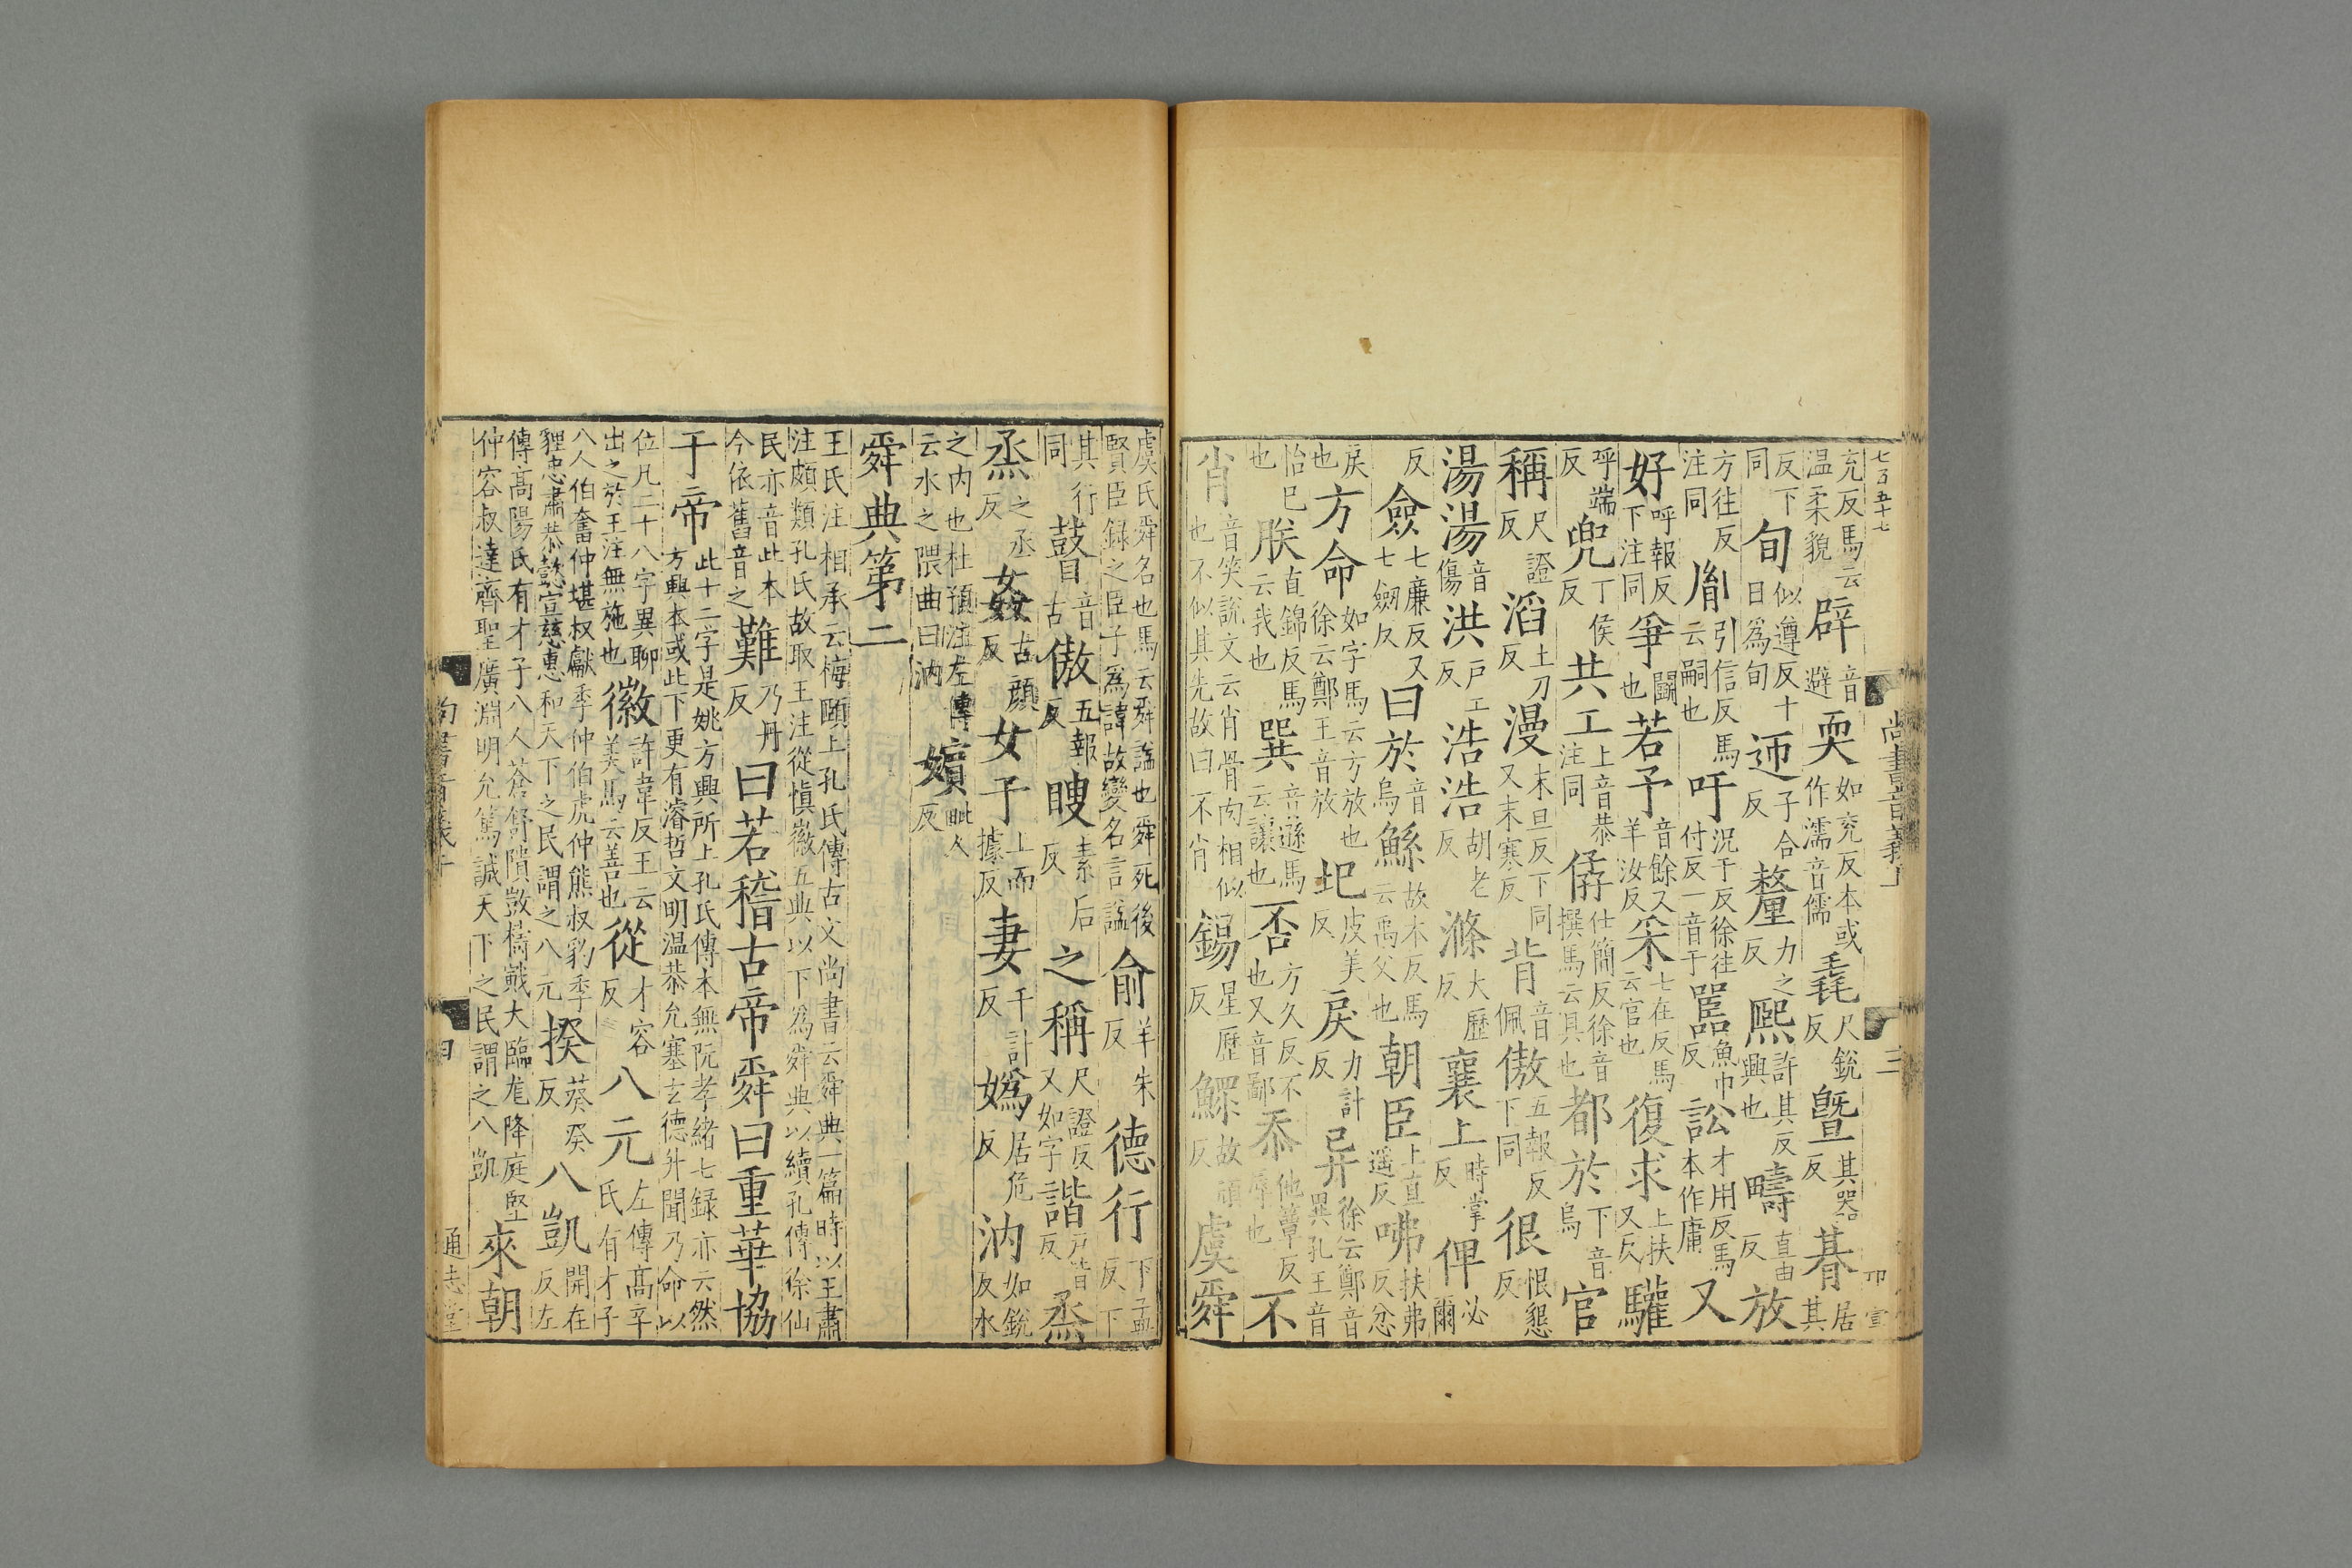 七百五十七
尚書音義上
三
充反馬云温柔貌 辟 音避 耎 如兖反本或作濡音儒 毳 尺銳反 曁 其器反 朞 居其
反下同 旬 似遵反十日為旬 迊 子合反 釐 力之反 熙 許其反興也 疇 直由反 放
方往反注同 胤 引信反馬云嗣也 吁 況于反徐往付反一音于 嚚 魚巾反 訟 才用反馬本作庸 又
好 呼報反下注同 爭 鬬也 若予 音餘又羊汝反 采 七在反馬云官也 復求 上扶又反 驩
呼端反 兜 丁侯反 共工 上音恭注同 僝 仕簡反徐音撰馬云具也 都於 下音烏 官
稱 尺證反 滔 土刀反 漫 末旦反下同又末寒反 背 音佩 傲 五報反下同 很 恨懇反
湯湯 音傷 洪 戶工反 浩浩 胡老反 滌 大歷反 襄上 時掌反 俾 必爾
反 僉 七廉反又七劒反 曰於 音烏 鯀 故本反馬云禹父也 朝臣 上直遥反 咈 扶弗反忿
戾也 方命 如字馬云方放也徐云鄭王音放 圮 皮美反 戾 力計反 异 徐云鄭音異孔王音
怡巳也 朕 直錦反馬云我也 巽 音遜馬云讓也 否 方久反不也又音鄙 忝 他簟反辱也 不
肖 音笑說文云肖骨肉相似也不似其先故曰不肖 錫 星歷反 鰥 故頑反 虞舜
虞氏舜名也馬云舜謚也舜死後賢臣録之臣子為諱故變名言謚 俞 羊朱反 德行 下孟反下
其行同 瞽 音古 傲 五報反 瞍 素后反 之稱 尺證反又如字 諧 戶皆反 烝
烝 之丞反 姦 古顔反 女于 上而據反 妻 千計反 媯 居危反 汭 如銳反水
之内也杜預注左傳云水之隈曲曰汭 嬪 毗人反
舜典第二
王氏注相承云梅頤上孔氏傳古文尚書云舜典一篇時以王肅注頗類孔氏故取王注從愼徽五典以下為舜典以續孔傳徐仙
民亦音此本今依舊音之 難 乃丹反 曰若稽古帝舜曰重華協
于帝 此十二字是姚方興所上孔氏傳本無阮孝緒七録亦云然方興本或此下更有濬哲文明温恭允塞玄德升聞乃命以
位凡二十八字異聊出之於王注無施也 徽 許韋反王云美馬云善也 從 才容反 八元 左傳髙辛氏有才子
八人伯奮仲堪叔獻季仲伯虎仲熊叔豹季貍忠肅恭懿宣慈惠和天下之民謂之八元 揆 葵癸反 八凱 開在反左
傳髙陽氏有才子八人蒼舒隤敳檮戭大臨尨降庭堅仲容叔達齊聖廣淵明允篤誠天下之民謂之八凱 來朝
通志堂